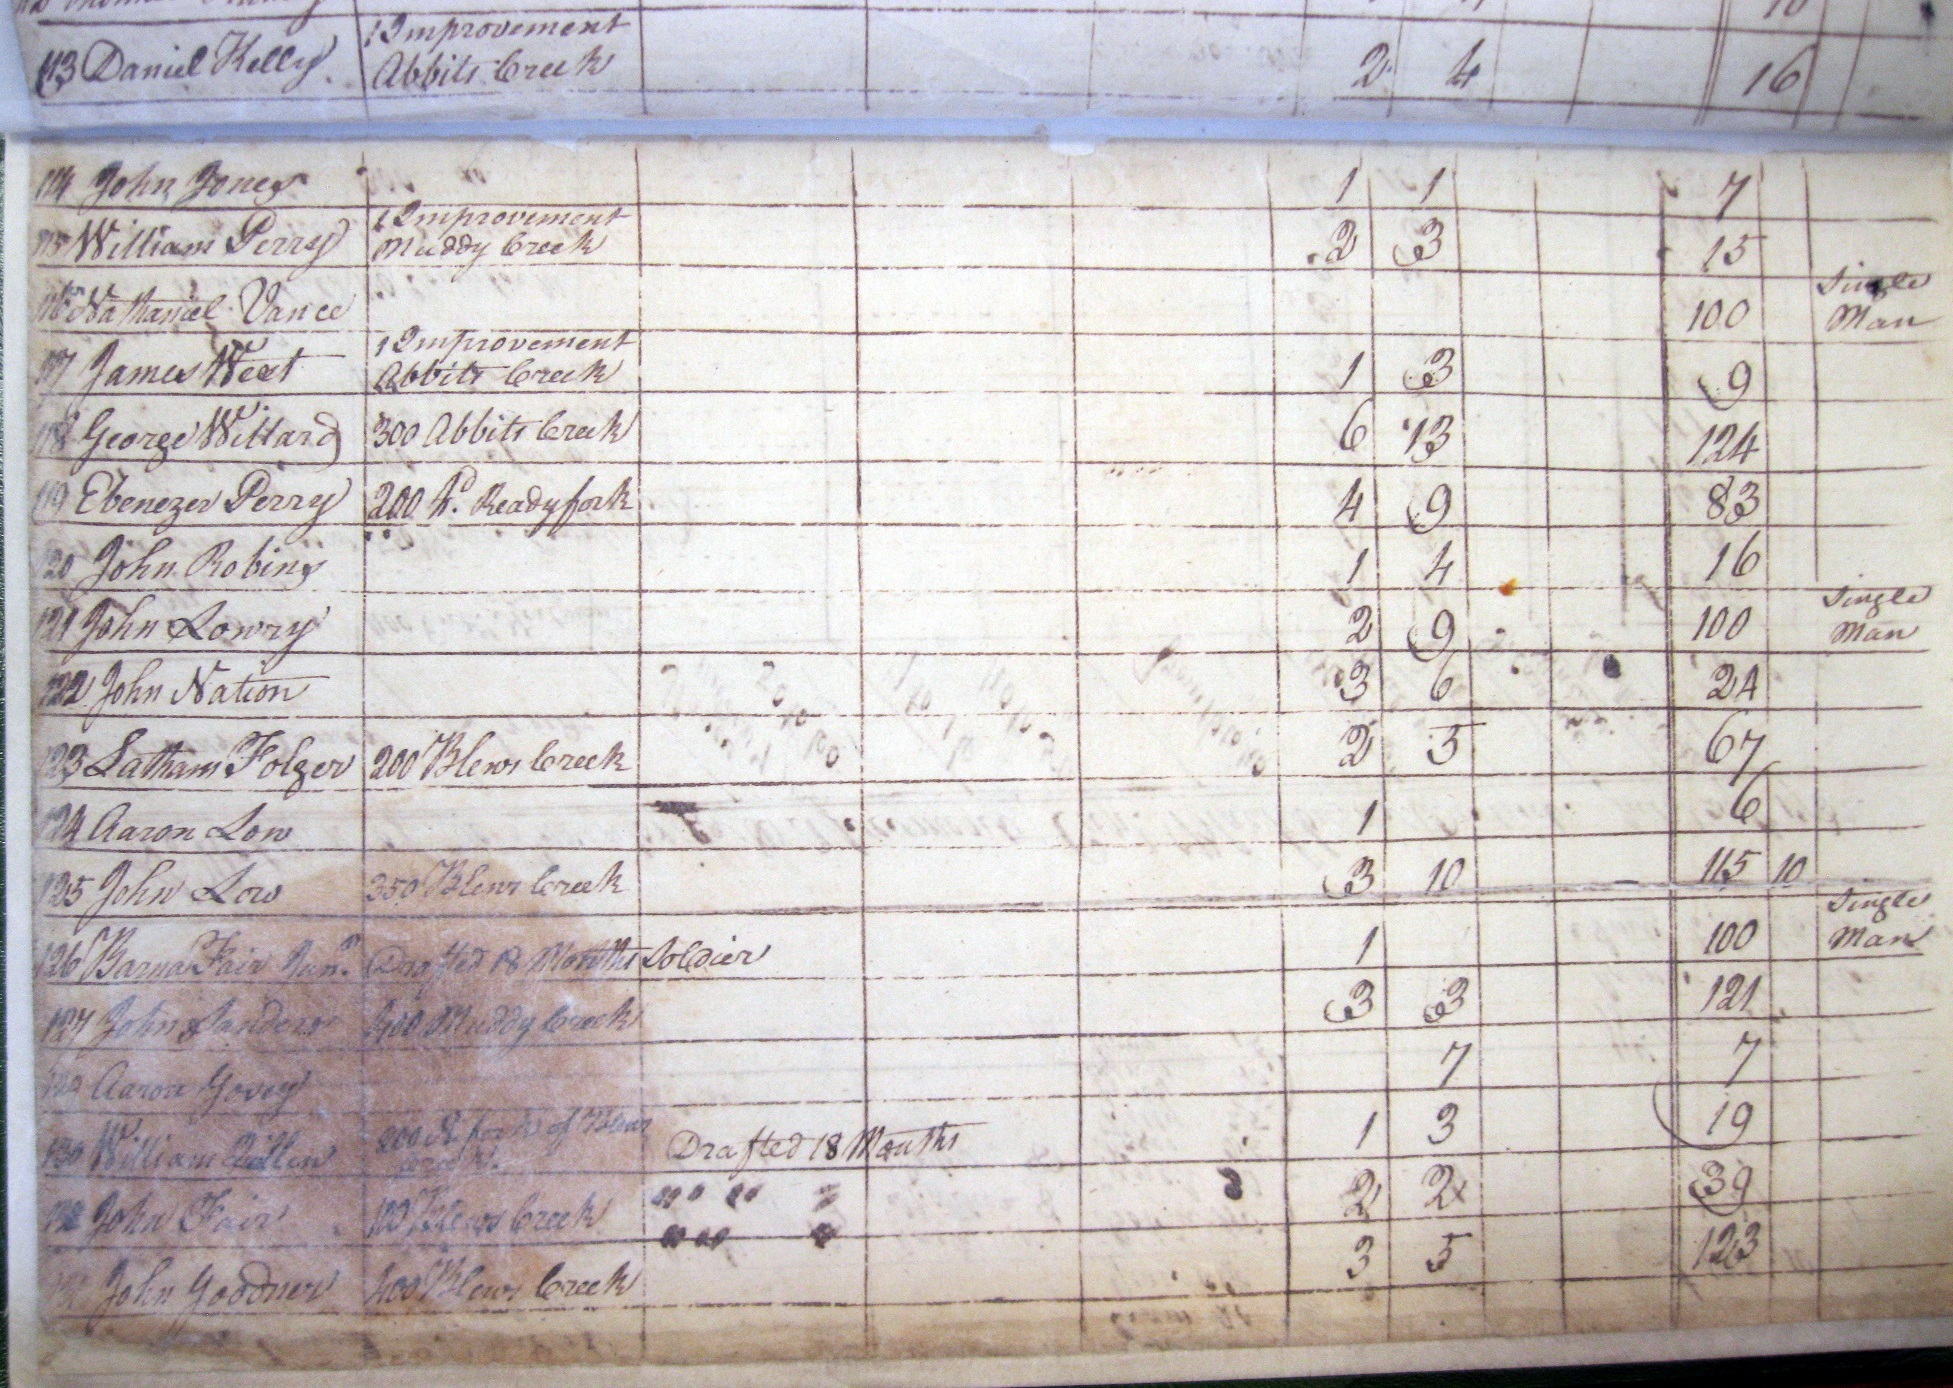 1 Improvement
113 Daniel Kelly. Abbits Creek 2 4 16
114 John Jones 1 1 7
1 Improvement
115 William Perry Muddy Creek 2 3 15
Single
116 Nathaniel Vance 100 Man
1 Improvement
117 James West Abbits Creek 1 3 9
118 George Willard 300 Abbits Creek 6 13 124
119 Ebenezer Perry 200 Readyfork 4 9 83
120 John Robins 1 4 16
Single
121 John Lowry 2 9 100 Man
122 John Nation 3 6 24
123 Latham Folger 200 Blews Creek 2 5 67
124 Aaron Low 1 6
125 John Low 350 Blews Creek 3 10 115 10
Single
126 Barna Fair Junr. Drafted 18 Months Soldier 1 100 Man
127 John Sanders 400 Muddy Creek 3 3 121
Aaron 7 7
200 fork of Blews
130 William Drafted 18 Months 1 3 19
Creek.
John Fair 100 Blews Creek " " " " 2 2 39
John Goddner 400 Blews Creek " " " 3 5 123